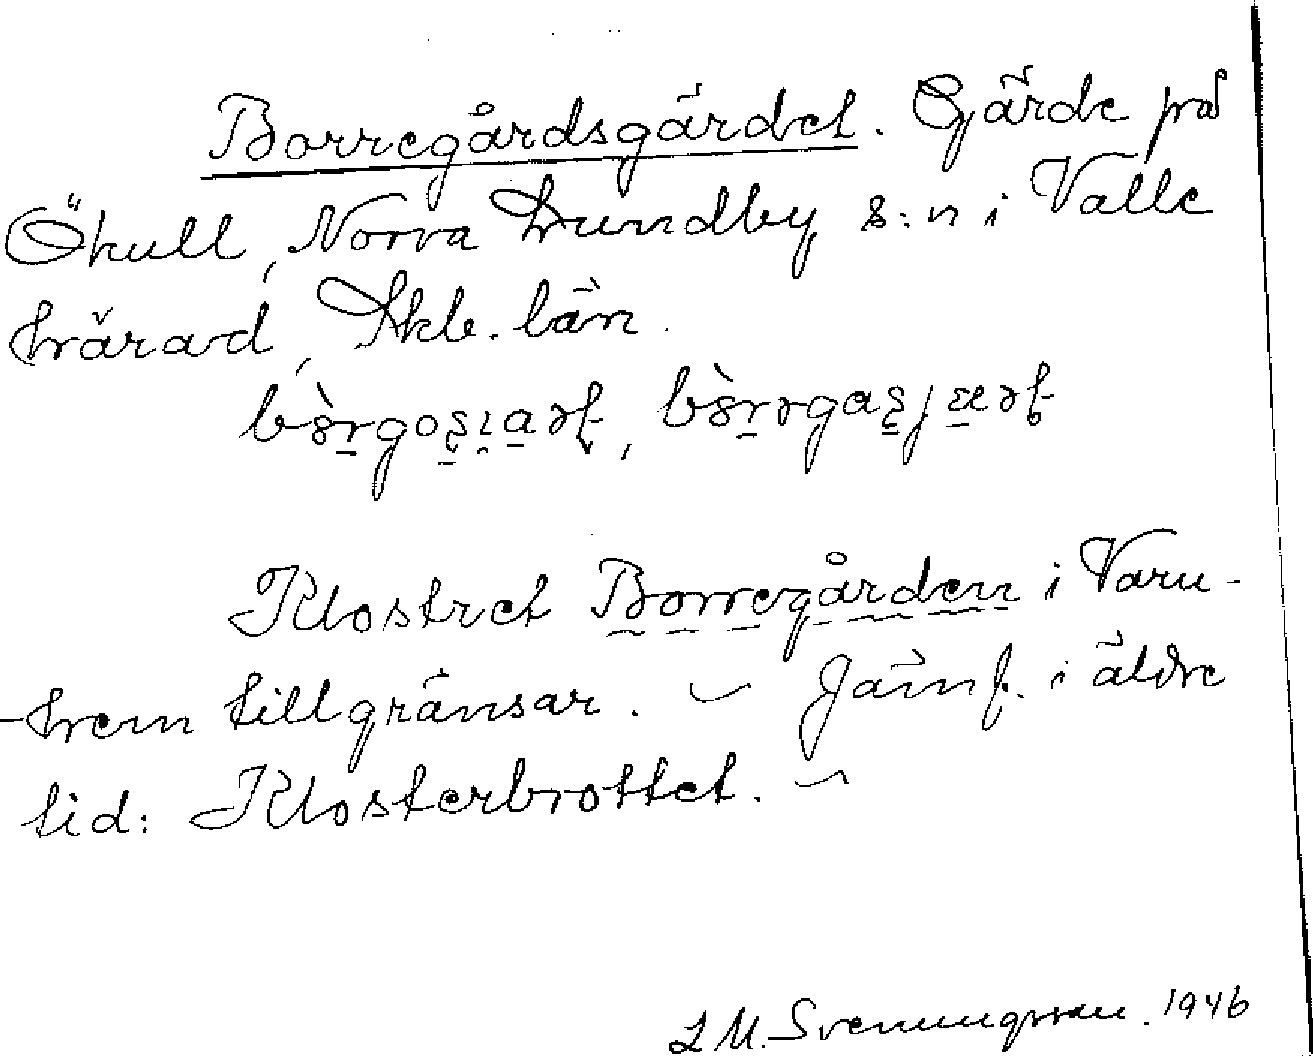 Borregårdsgärdet. Gärde på
Ökull, Norra Lundby s:n i Valle
härad, Skb. län.
Klostret Borregården i Varn-
hem tillgränsar. — Jämf. i äldre
tid: Klosterbrottet. —
L M. Svenungsson. 1946